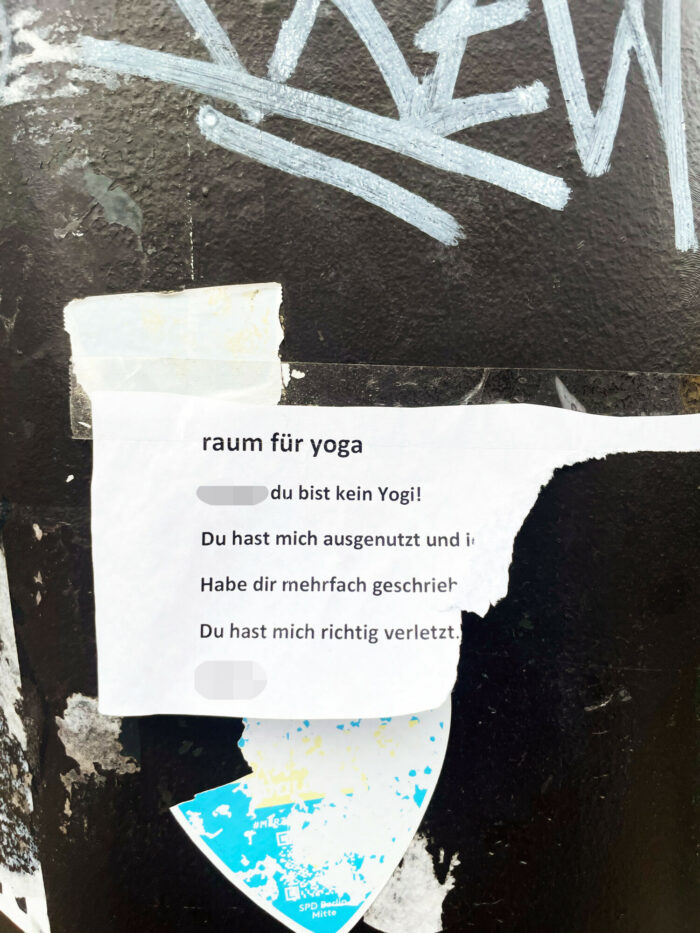 raum für yoga
du bist kein Yogi!
Du hast mich ausgenutzt und
Habe dir mehrfach
Du hast mich richtig verletzt.
SPD Berlin
Mitte